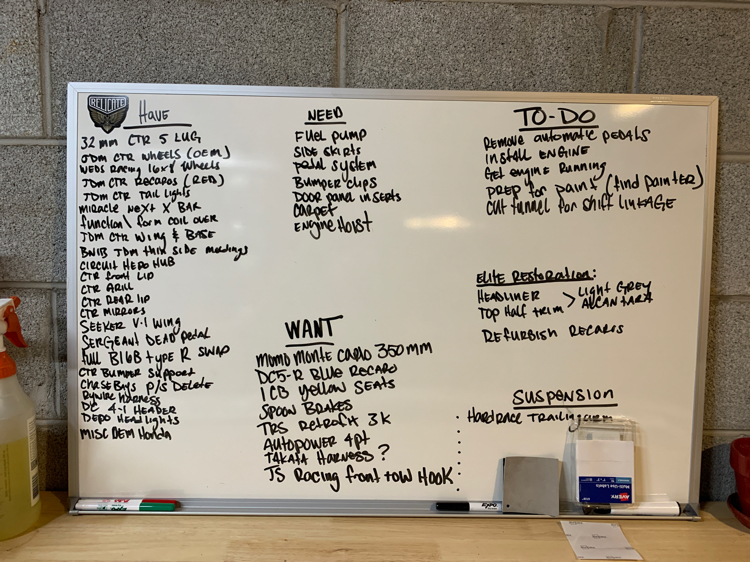 RELICATE
HAVE
32mm CTR 5 LUG
JDM CTR WHEELS (OEM)
WEDS RACING 16x8 Wheels
JDM CTR RECAROS (RED)
JDM CTR TAIL lights
MIRACLE NEXT X BAR
function & form COIL OVER
JDM CTR WING & BASE
BNIB JDM thin SIDE moldings
CIRCUIT HERO HUB
CTR front Lip
CTR GRILL
CTR REAR lip
CTR MIRRORS
SEEKER V-1 WING
SERGEANT DEAD pedal
full B16B type R SWAP
CTR BUMPER SUPPORT
CHASEBAYS P/S DELETE
RYWIRE HARNESS
DC 4-1 HEADER
DEPO HEADLIGHTS
MISC OEM Honda
NEED
FUEL pump
SIDE SKIRTS
pedal SYSTEM
BUMPER CLIPS
DOOR panel inserts
CARPET
ENGINE HOIST
WANT
MOMO MONTE CARLO 350mm
DC5-R BLUE RECARO
ICB Yellow SEATS
SPOON BRAKES
TRS RETROFIT 3K
AUTOPOWER 4pt
TAKATA HARNESS ?
JS RACING front tow HOOK
TO-DO
REMOVE automatic PEDALS
INSTALL ENGINE
GET engine Running
PREP for paint (find PAINTER)
CUT tunnel for shift LINKAGE
ELITE RESTORATION:
HEADLINER
TOP Half trim > LIGHT GREY ALCANTARA
REFURBISH RECAROS
SUSPENSION
HARDRACE TRAILING ARM
Multi-Use Labels
AVERY
EXPO